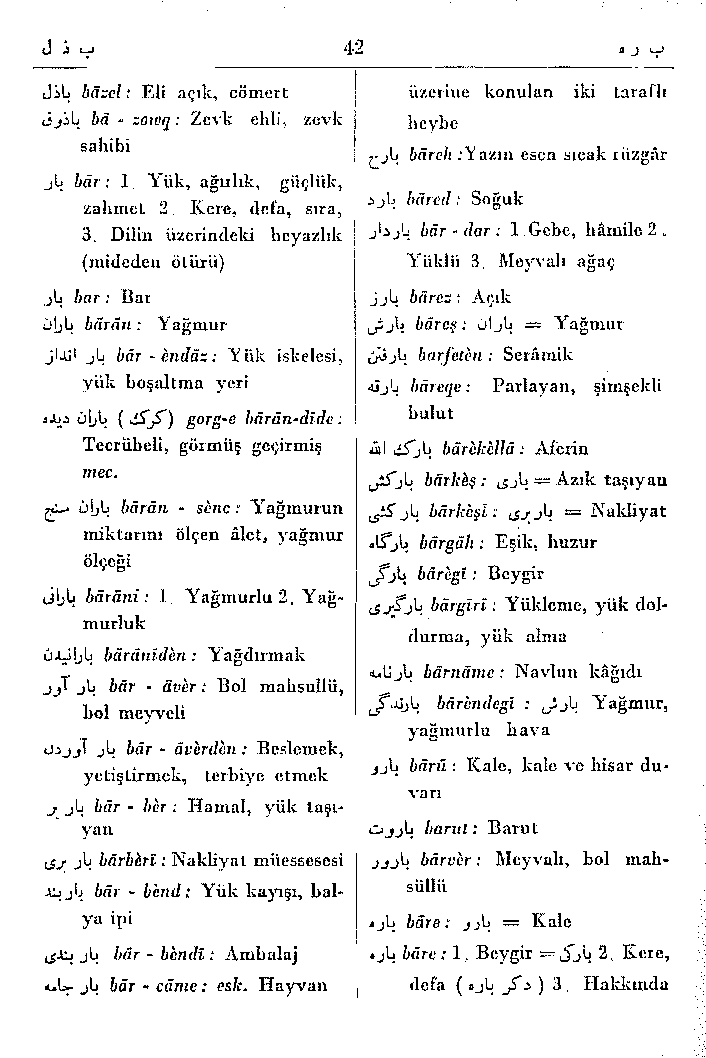 ب ذ ل
42
ب ر ه
باذل bāzel: Eli açık, cömert
باذوق bā - zowq: Zevk ehli, zevk
sahibi
بار bār: 1. Yük, ağırlık, güçlük,
zahmet 2. Kere, defa, sıra,
3. Dilin üzerindeki beyazlık
(mideden ötürü)
بار bar: Bar
باران bārān: Yağmur
بار انداز bār - èndāz: Yük iskelesi,
yük boşaltma yeri
باران دیده (گرگ) gorg-e bārān-dīde:
Tecrübeli, görmüş geçirmiş
mec.
باران سنج bārān - sènc: Yağmurun
miktarını ölçen âlet, yağmur
ölçeği
بارانی bārāni: 1. Yağmurlu 2. Yağ-
murluk
بارانیدن bārānīdèn: Yağdırmak
بار آور bār - āvèr: Bol mahsullü,
bol meyveli
بار آوردن bār - āvèrdèn: Beslemek,
yetiştirmek, terbiye etmek
بار بر bār - bèr: Hamal, yük taşı-
yan
بار بری bārbèrī: Nakliyat müessesesi
باربند bār - bènd: Yük kayışı, bal-
ya ipi
بار بندی bār - bèndī: Ambalaj
بار جامه bār - cāme: esk. Hayvan
üzerine konulan iki taraflı
heybe
بارح bāreh: Yazın esen sıcak rüzgâr
بارد bāred: Soğuk
باردار bār - dar: 1.Gebe, hâmile 2.
Yüklü 3. Meyvalı ağaç
بارز bārez: Açık
بارش bāreş: باران = Yağmur
بارفتن barfetèn: Serâmik
بارقه bāreqe: Parlayan, şimşekli
bulut
بارک الله bārèkèllā: Aferin
بارکش bārkèş: باری = Azık taşıyan
بار کشی bārkèşī: باربری = Nakliyat
بارگاه bārgāh: Eşik, huzur
بارگی bārègī: Beygir
بارگیری bārgīrī: Yükleme, yük dol-
durma, yük alma
بارنامه bārnāme: Navlun kâğıdı
بارندگی bārèndegī: بارش Yağmur,
yağmurlu hava
بارو bārū: Kale, kale ve hisar du-
varı
باروت barut: Barut
بارور bārvèr: Meyvalı, bol mah-
süllü
باره bāre: بارو = Kale
باره bāre: 1. Beygir = بارگی 2. Kere,
defa (دگر باره) 3. Hakkında